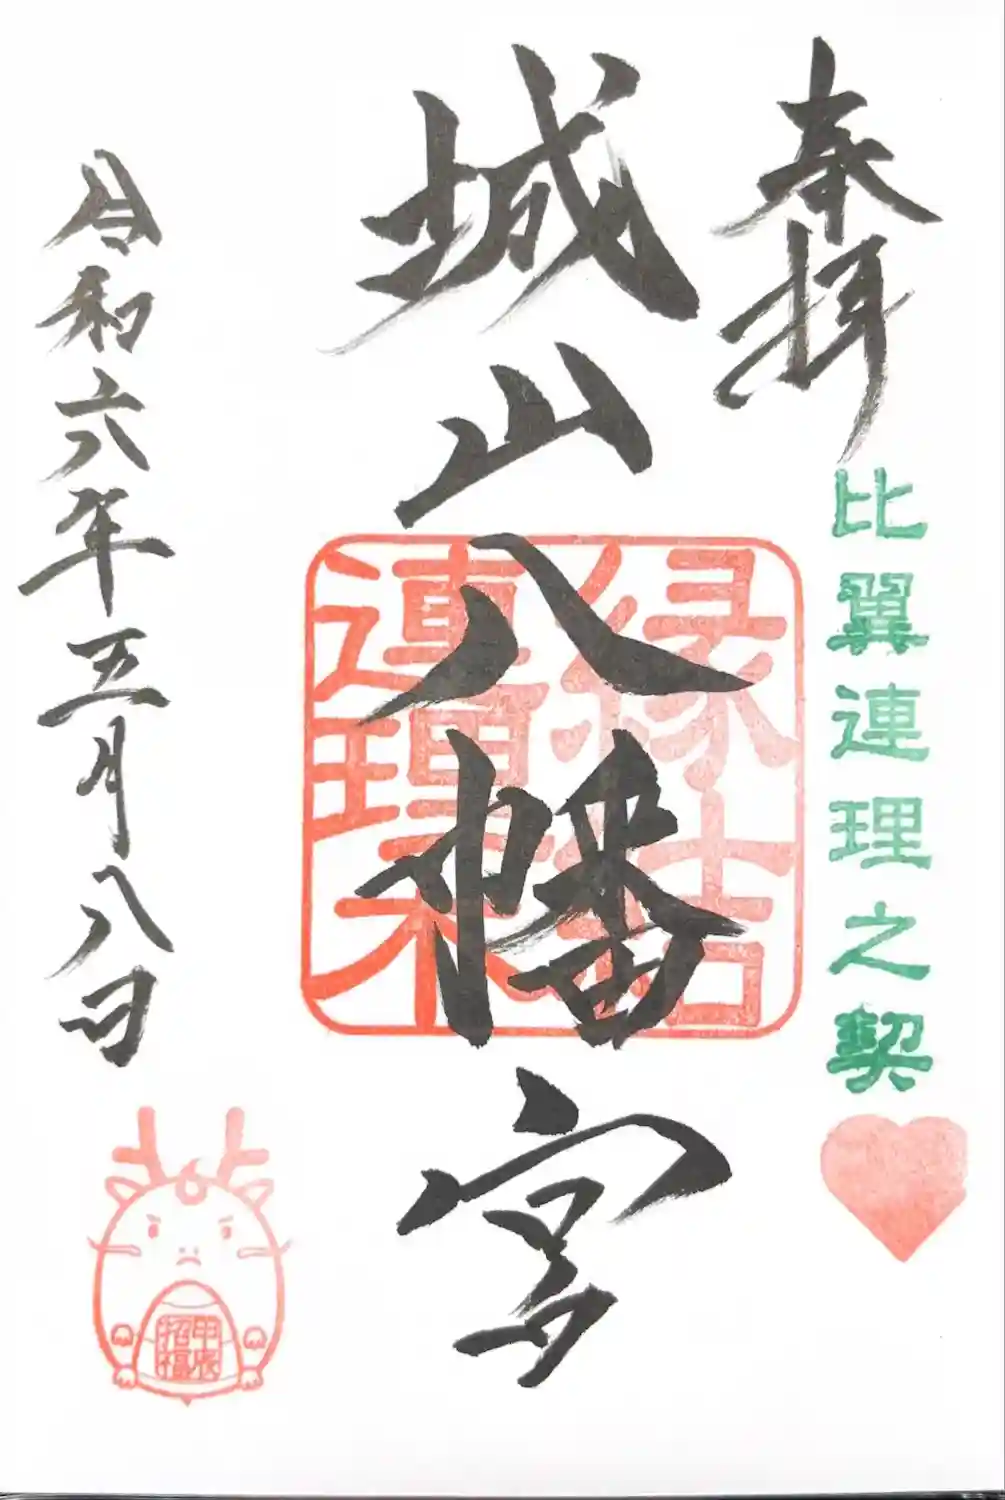 奉拝
比翼連理之契
城山八幡宮
縁結
連理木
令和六年五月八日
甲辰
招福